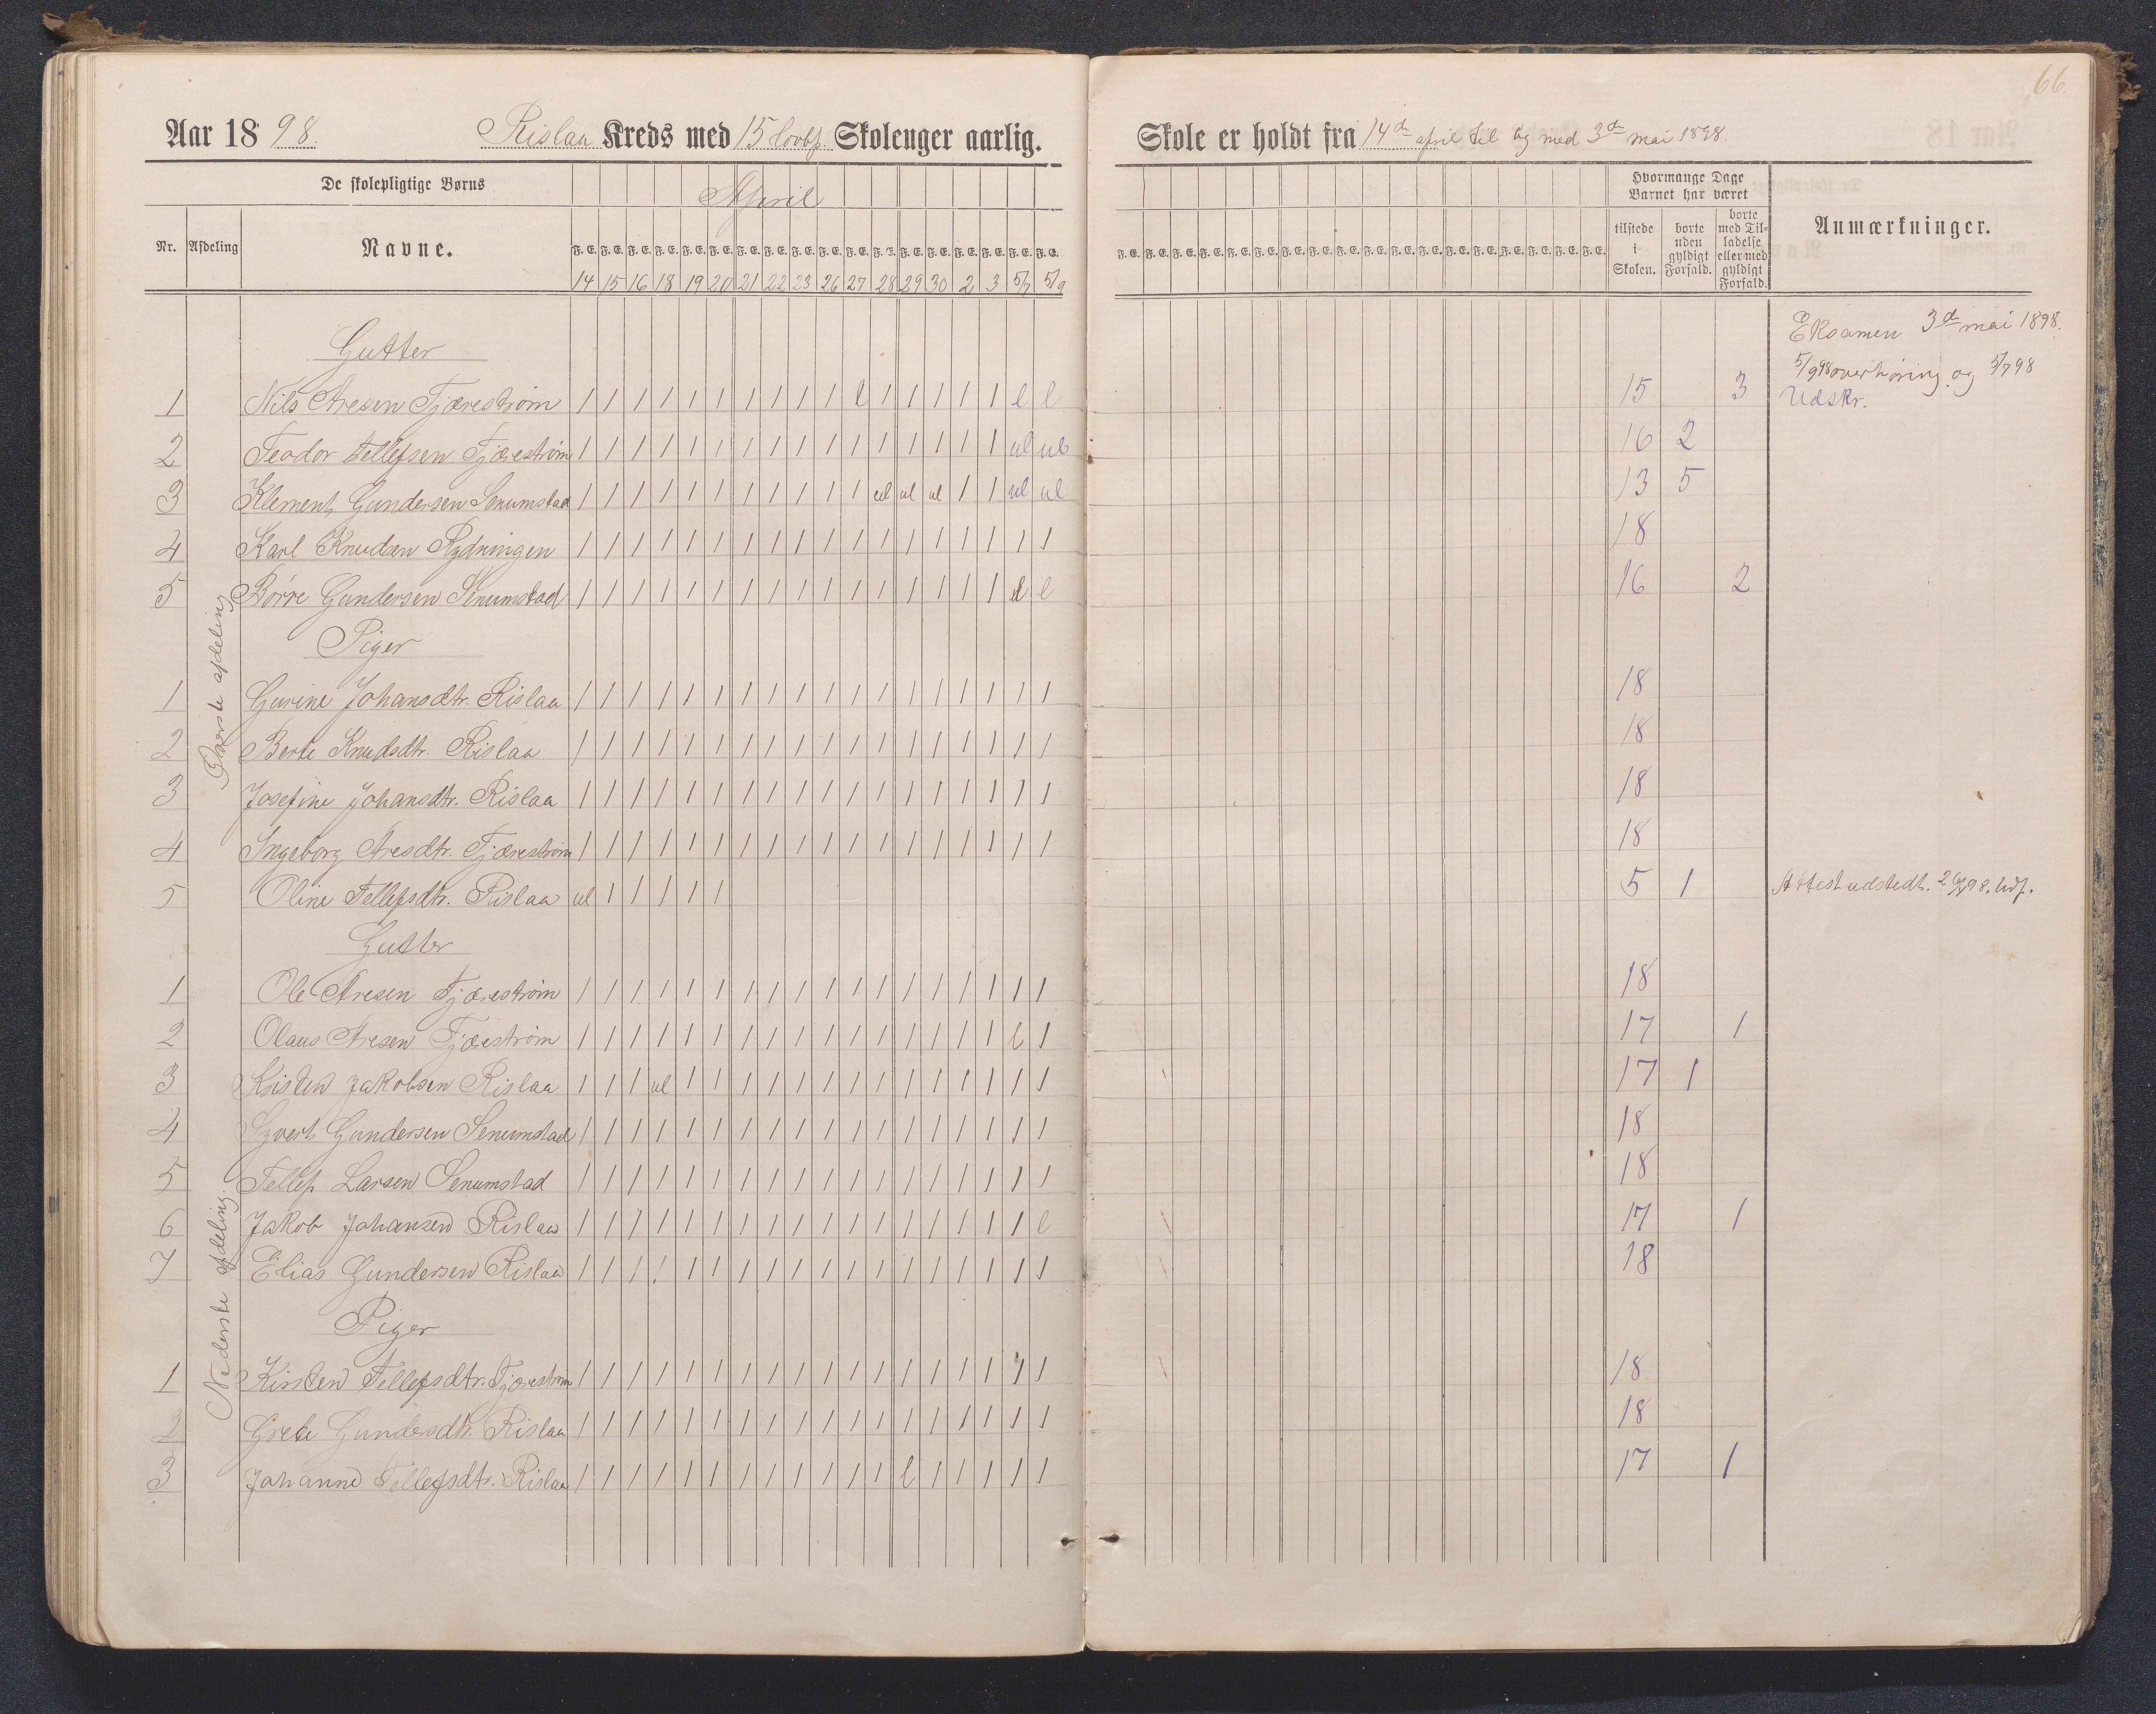 66.
Aar 1898. Rislaa Kreds med 15 lovbf. Skoleuger aarlig.
Skole er holdt fra 14d april til og med 3d mai 1898
De skolepligtige Børns April
Hvormange Dage Barnet har været
Nr. Afdeling Navne. F. E. F. E. F. E. F. E. F. E. F. E. F. E. F. E. F. E. F. E. F. E. F. E. F. E. F. E. F. E. F. E. F. E. F. E.
F. E. F. E. F. E. F. E. F. E. F. E. F. E. F. E. F. E. F. E. F. E. F. E. F. E. F. E. F. E. F. E. F. E. F. E. tilstede i Skolen. borte uden gyldigt Forfald. borte med Tilladelse eller med gyldigt Forfald. Anmærkninger.
14 15 16 18 19 20 21 22 23 26 27 28 29 30 2 3 5/7 5/9
Øverste afdeling
Gutter
Eksamen 3d mai 1898.
5/9 98 overhøring og 5/7 98
1 Nils Aresen Fjærestrøm 1 1 1 1 1 1 1 1 1 1 l 1 1 1 1 1 l l 15 3 Udskr.
2 Teodor Tellefsen Fjærestrøm 1 1 1 1 1 1 1 1 1 1 1 1 1 1 1 1 ul ul 16 2
3 Klement Gundersen Senumstad 1 1 1 1 1 1 1 1 1 1 1 ul ul ul 1 1 ul ul 13 5
4 Karl Knudsen Rydningen 1 1 1 1 1 1 1 1 1 1 1 1 1 1 1 1 1 1 18
5 Børre Gundersen Senumstad 1 1 1 1 1 1 1 1 1 1 1 1 1 1 1 1 l l 16 2
Piger
1 Gurine Johansdtr. Rislaa 1 1 1 1 1 1 1 1 1 1 1 1 1 1 1 1 1 1 18
2 Berte Knudsdtr. Rislaa 1 1 1 1 1 1 1 1 1 1 1 1 1 1 1 1 1 1 18
3 Josefine Johansdtr. Rislaa 1 1 1 1 1 1 1 1 1 1 1 1 1 1 1 1 1 1 18
4 Ingeborg Aresdtr. Fjærestrøm 1 1 1 1 1 1 1 1 1 1 1 1 1 1 1 1 1 1 18
5 Oline Tellefsdtr. Rislaa ul 1 1 1 1 1 5 1 Attest udstedt.
Nederste afdeling.
Gutter
1 Ole Aresen Fjærestrøm 1 1 1 1 1 1 1 1 1 1 1 1 1 1 1 1 1 1 18
2 Olaus Aresen Fjærestrøm 1 1 1 1 1 1 1 1 1 1 1 1 1 1 1 1 l 1 17 1
3 Kristen Jakobsen Rislaa 1 1 1 ul 1 1 1 1 1 1 1 1 1 1 1 1 1 1 17 1
4 Syvert Gundersen Senumstad 1 1 1 1 1 1 1 1 1 1 1 1 1 1 1 1 1 1 18
5 Tellef Larsen Senumstad 1 1 1 1 1 1 1 1 1 1 1 1 1 1 1 1 1 1 18
6 Jakob Johansen Rislaa 1 1 1 1 1 1 1 1 1 1 1 1 1 1 1 1 1 l 17 1
7 Elias Gundersen Rislaa 1 1 1 1 1 1 1 1 1 1 1 1 1 1 1 1 1 1 18
Piger
1 Kirsten Tellefsdtr. Fjærestrøm 1 1 1 1 1 1 1 1 1 1 1 1 1 1 1 1 1 1 18
2 Grete Gundersdtr. Rislaa 1 1 1 1 1 1 1 1 1 1 1 1 1 1 1 1 1 1 18
3 Johanne Tellefsdtr. Rislaa 1 1 1 1 1 1 1 1 1 1 1 1 l 1 1 1 1 1 17 1